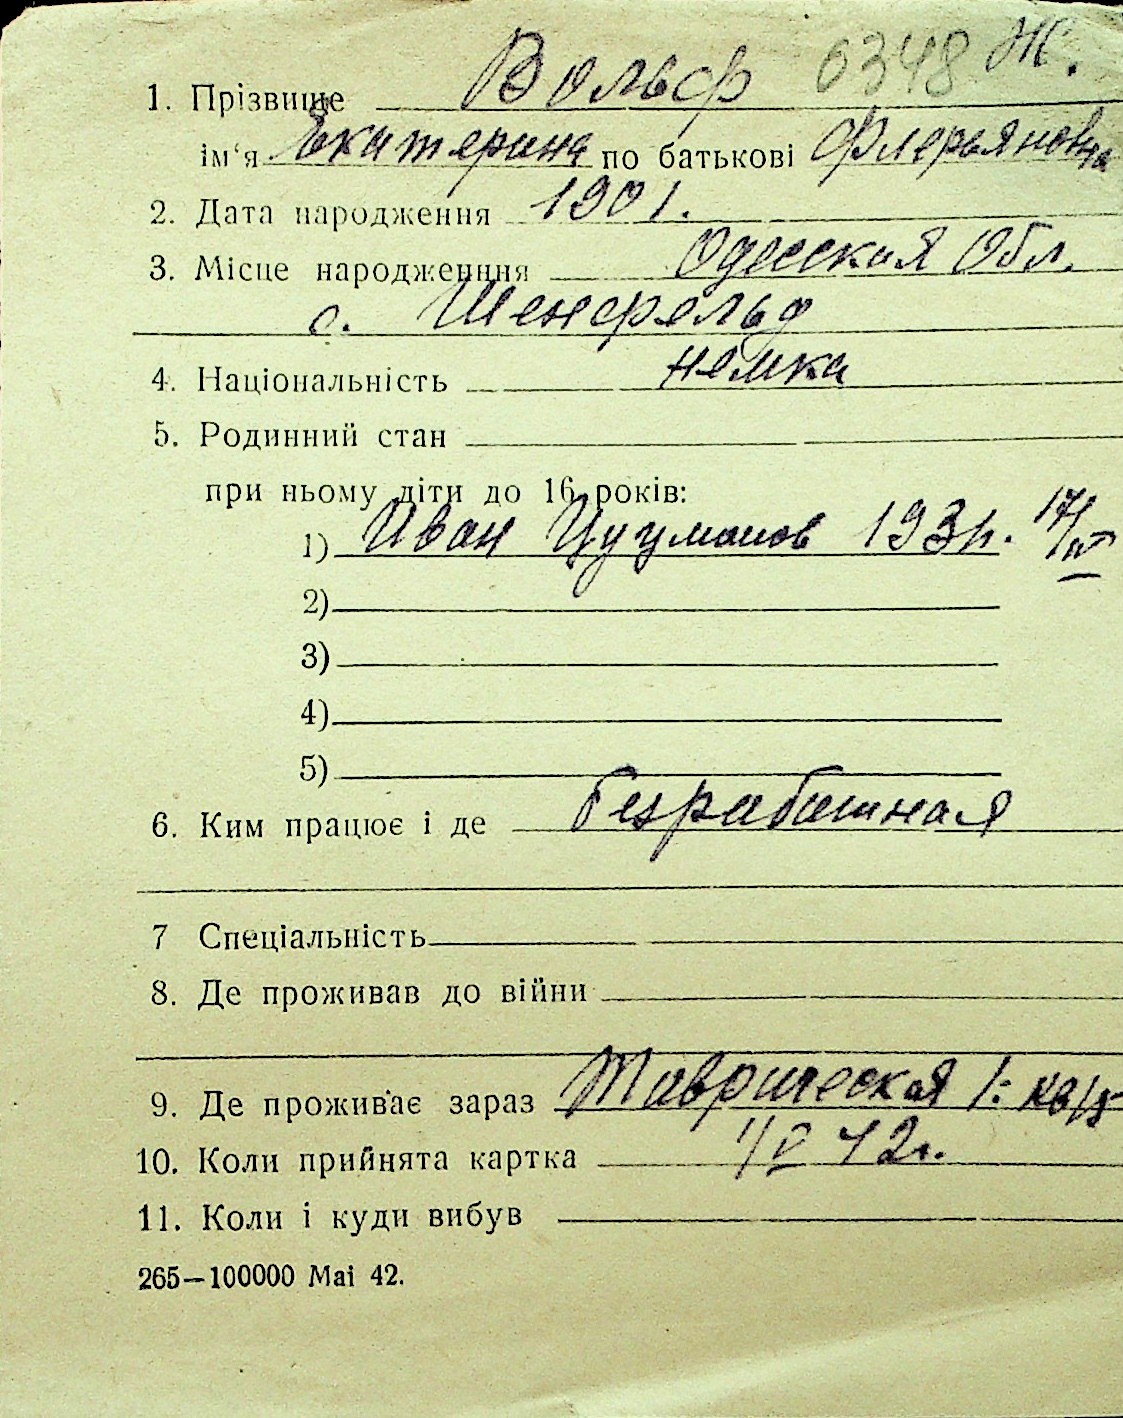 6348 Ж.
1. Прізвище Вольф
ім'я Екатерина по батькові Флерьяновна
2. Дата народження 1901.
3. Місце народженння Одесская Обл.
с. Шенфельд
4. Національність немка
5. Родинний стан
при ньому діти до 16 років:
1) Иван 193 17/IV
2)
3)
4)
5)
6. Ким працює і де безработная
7 Спеціальність
8. Де проживав до війни
9. Де проживає зараз Таврическая 1: кв/5
10. Коли прийнята картка 1/V 42г.
11. Коли і куди вибув
265—100000 Маі 42.